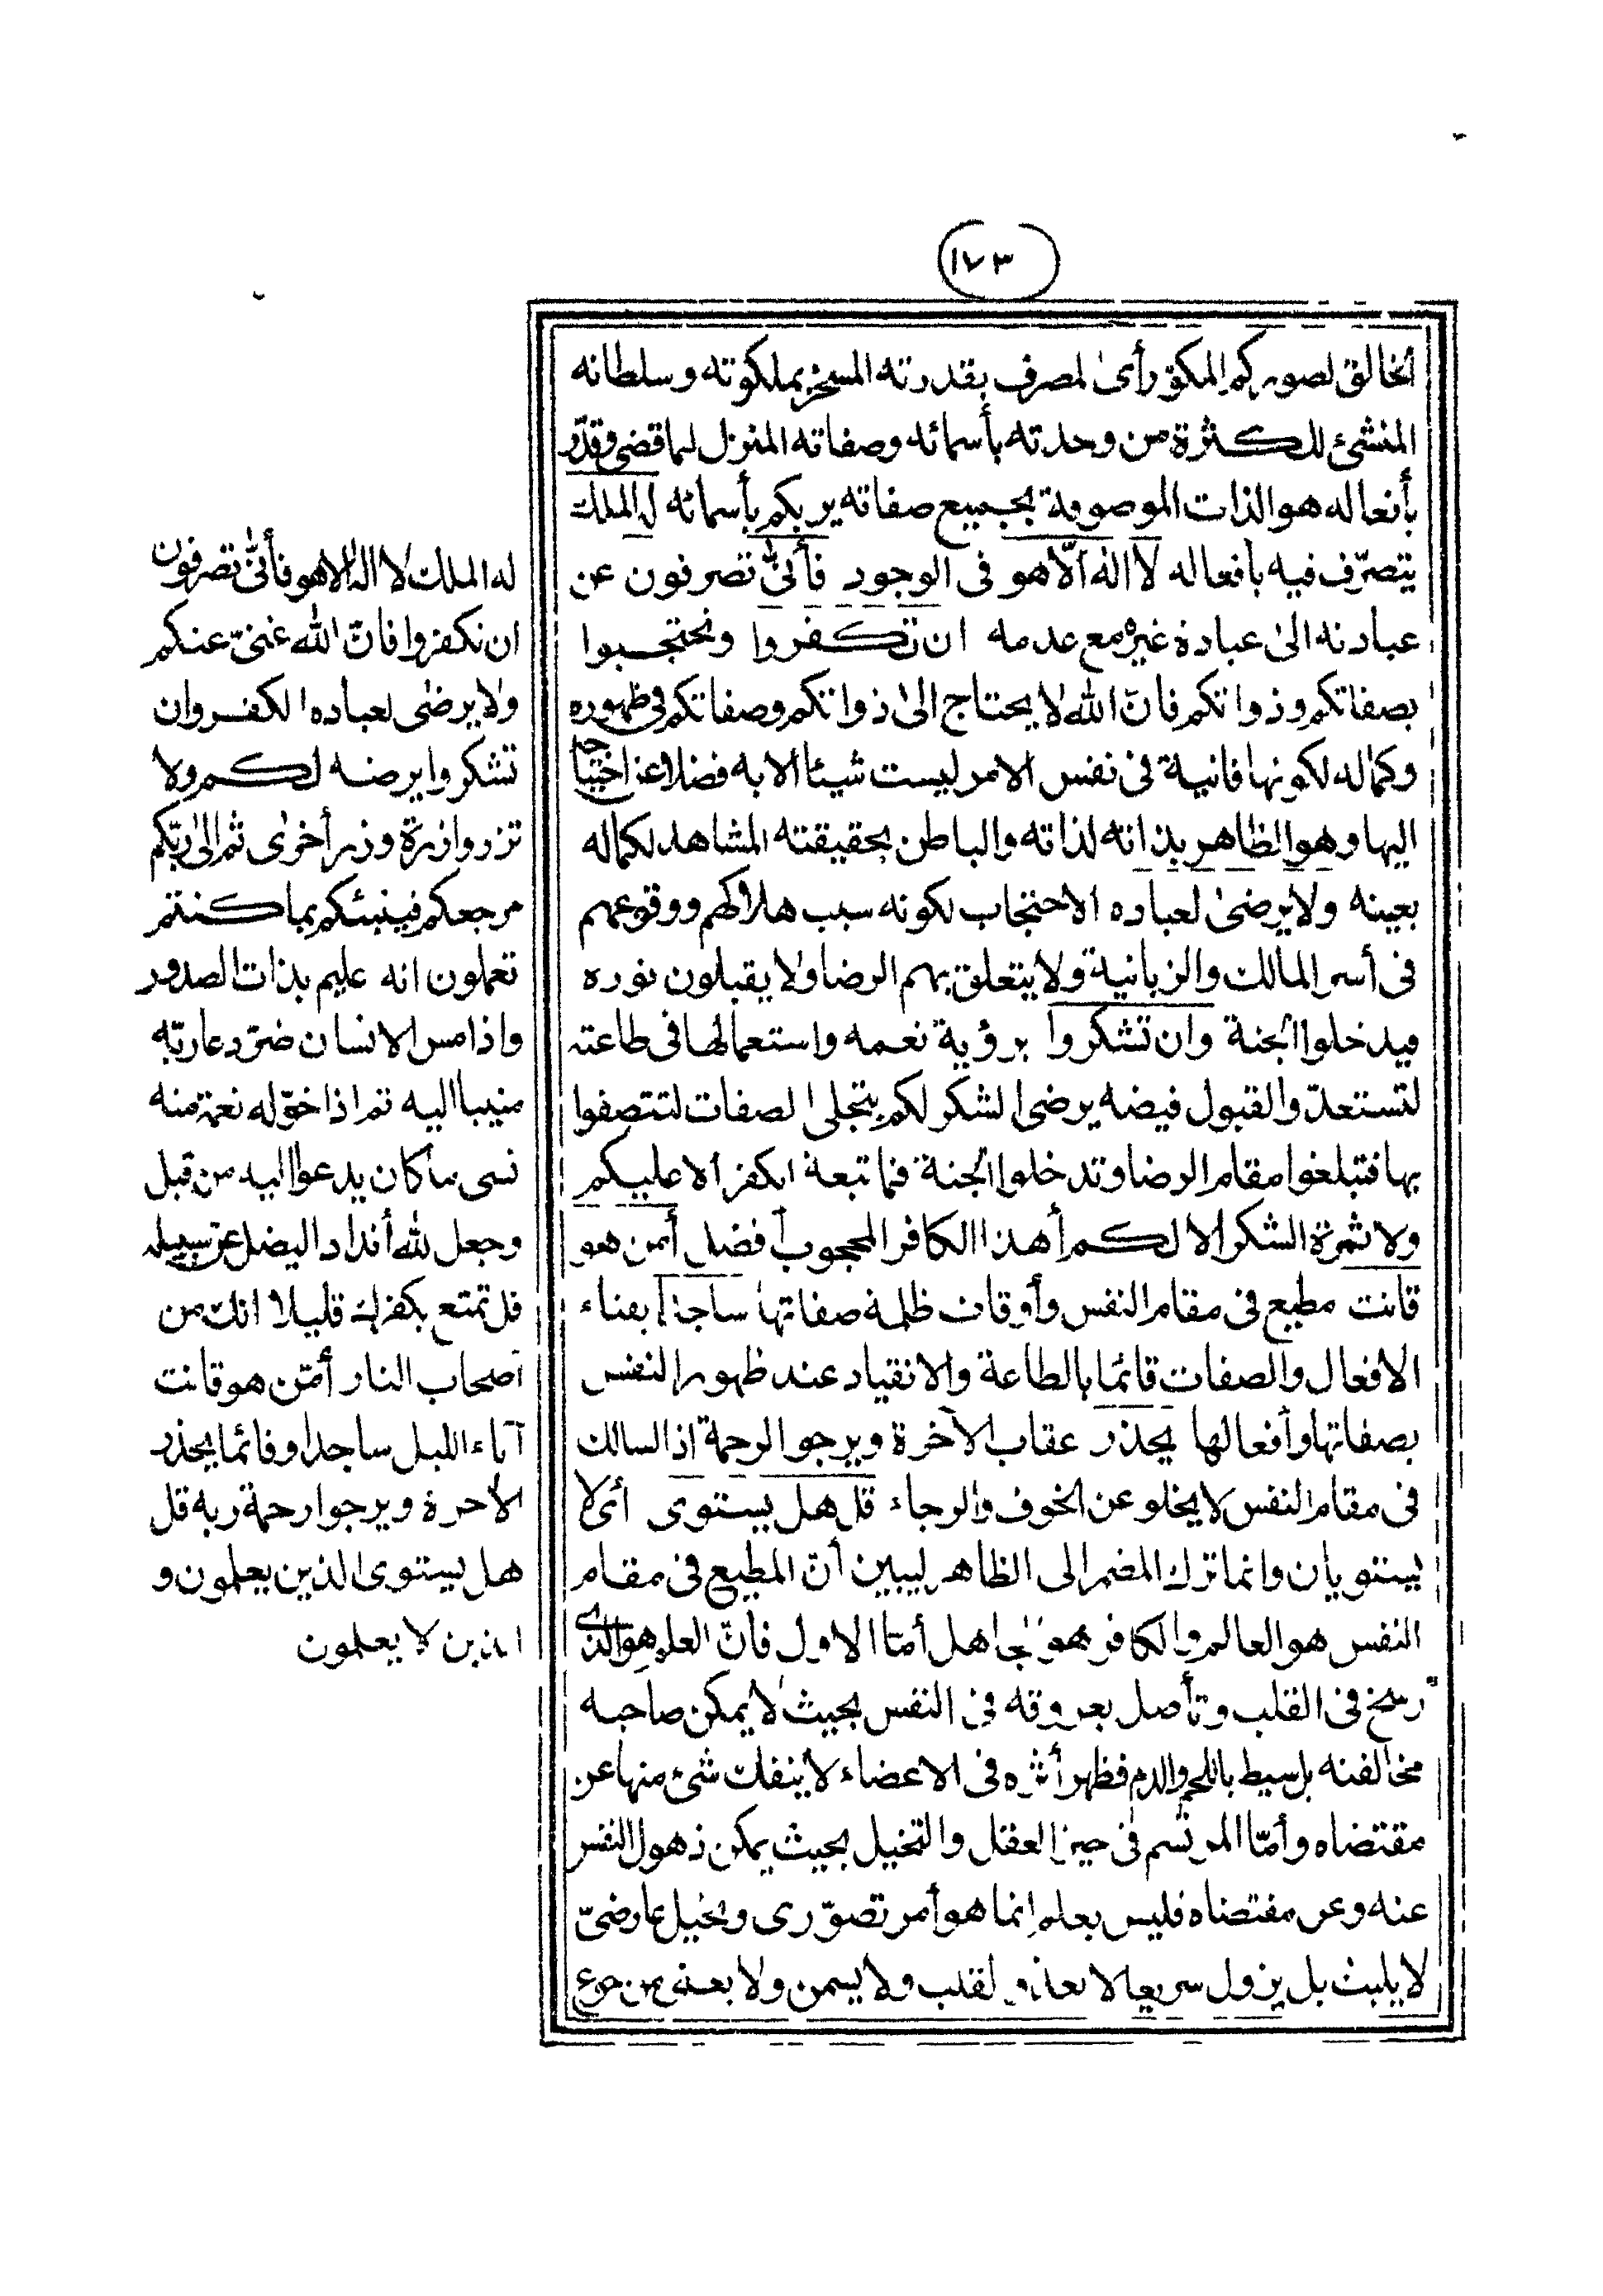 (١٧٣)
الخالق لصوركم المكوّر أى المصرف بقدرته المسخر بملكوته وسلطانه
المنشئ للكثرة من وحدته بأسمائه وصفاته المنزل لما قضى وقدّر
بأفعاله هو الذات الموصوفة بجميع صفاته يربكم بأسمائه له الملك
يتصرّف فيه بأفعاله لا اله الّا هو فى الوجود فأنىّ تصرفون عن
عبادته الى عبادة غيره مع عدمه ان تكفروا وتحتجبوا
بصفاتكم وذواتكم فانّ الله لا يحتاج الى ذواتكم وصفاتكم فى ظهوره
وكماله لكونها فانية فى نفس الامر ليست شيئا الا به فضلا عن احتياجه
اليها وهو الظاهر بذاته لذاته والباطن بحقيقته المشاهد لكماله
بعينه ولا يرضى لعباده الاحتجاب لكونه سبب هلاكهم ووقوعهم
فى أسر المالك والزبانية ولا يتعلق بهم الرضا ولا يقبلون نوره
فيدخلوا الجنة وان تشكروا برؤية نعمه واستعمالها فى طاعته
لتستعدّوا لقبول فيضه يرضى الشكر لكم بتجلى الصفات لتتصفوا
بها فتبلغوا مقام الرضا وتدخلوا الجنة فما تبعة الكفر الا عليكم
ولا ثمرة الشكر الا لكم أهذا الكافر المحجوب أفضل أمن هو
قانت مطيع فى مقام النفس وأوقات ظلمة صفاتها ساجدا بفناء
الافعال والصفات قائما بالطاعة والانقياد عند ظهور النفس
بصفاتها وأفعالها يحذر عقاب الآخرة ويرجو الرحمة اذ السالك
فى مقام النفس لا يخلو عن الخوف والرجاء قل هل يستوى أى لا
يستويان وانما ترك المضمر الى الظاهر ليبين أنّ المطيع فى مقام
النفس هو العالم والكافر هو الجاهل أمّا الاول فانّ العلم هو الذى
رسخ فى القلب وتأصل بعروقه فى النفس بحيث لا يمكن صاحبه
مخالفته بل سيط باللحم والدم فظهر أثره فى الاعضاء لا ينفك شئ منها عن
مقتضاه وأمّا المرتسم فى حيز العقل والتخيل بحيث يمكن ذهول النفس
عنه وعن مقتضاه فليس بعلم انما هو أمر تصوّرى وتخيل عارضىّ
لا يلبث بل يزول سريعا لا يغذو القلب ولا يسمن ولا يغنى من جوع
له الملك لا اله الا هو فأنىّ تصرفون
ان تكفروا فانّ الله غنىّ عنكم
ولا يرضى لعباده الكفر وان
تشكروا يرضه لكم ولا
تزر وازرة وزر أخرى ثم الى ربّكم
مرجعكم فينبئكم بما كنتم
تعملون انه عليم بذات الصدور
واذا مس الانسان ضرّ دعا ربّه
منيبا اليه ثم اذا خوّله نعمة منه
نسى ما كان يدعوا اليه من قبل
وجعل لله أندادا ليضل عن سبيله
قل تمتع بكفرك قليلا انك من
أصحاب النار أمّن هو قانت
آناء الليل ساجدا وقائما يحذر
الآخرة ويرجوا رحمة ربه قل
هل يستوى الذين يعلمون و
الذين لا يعلمون